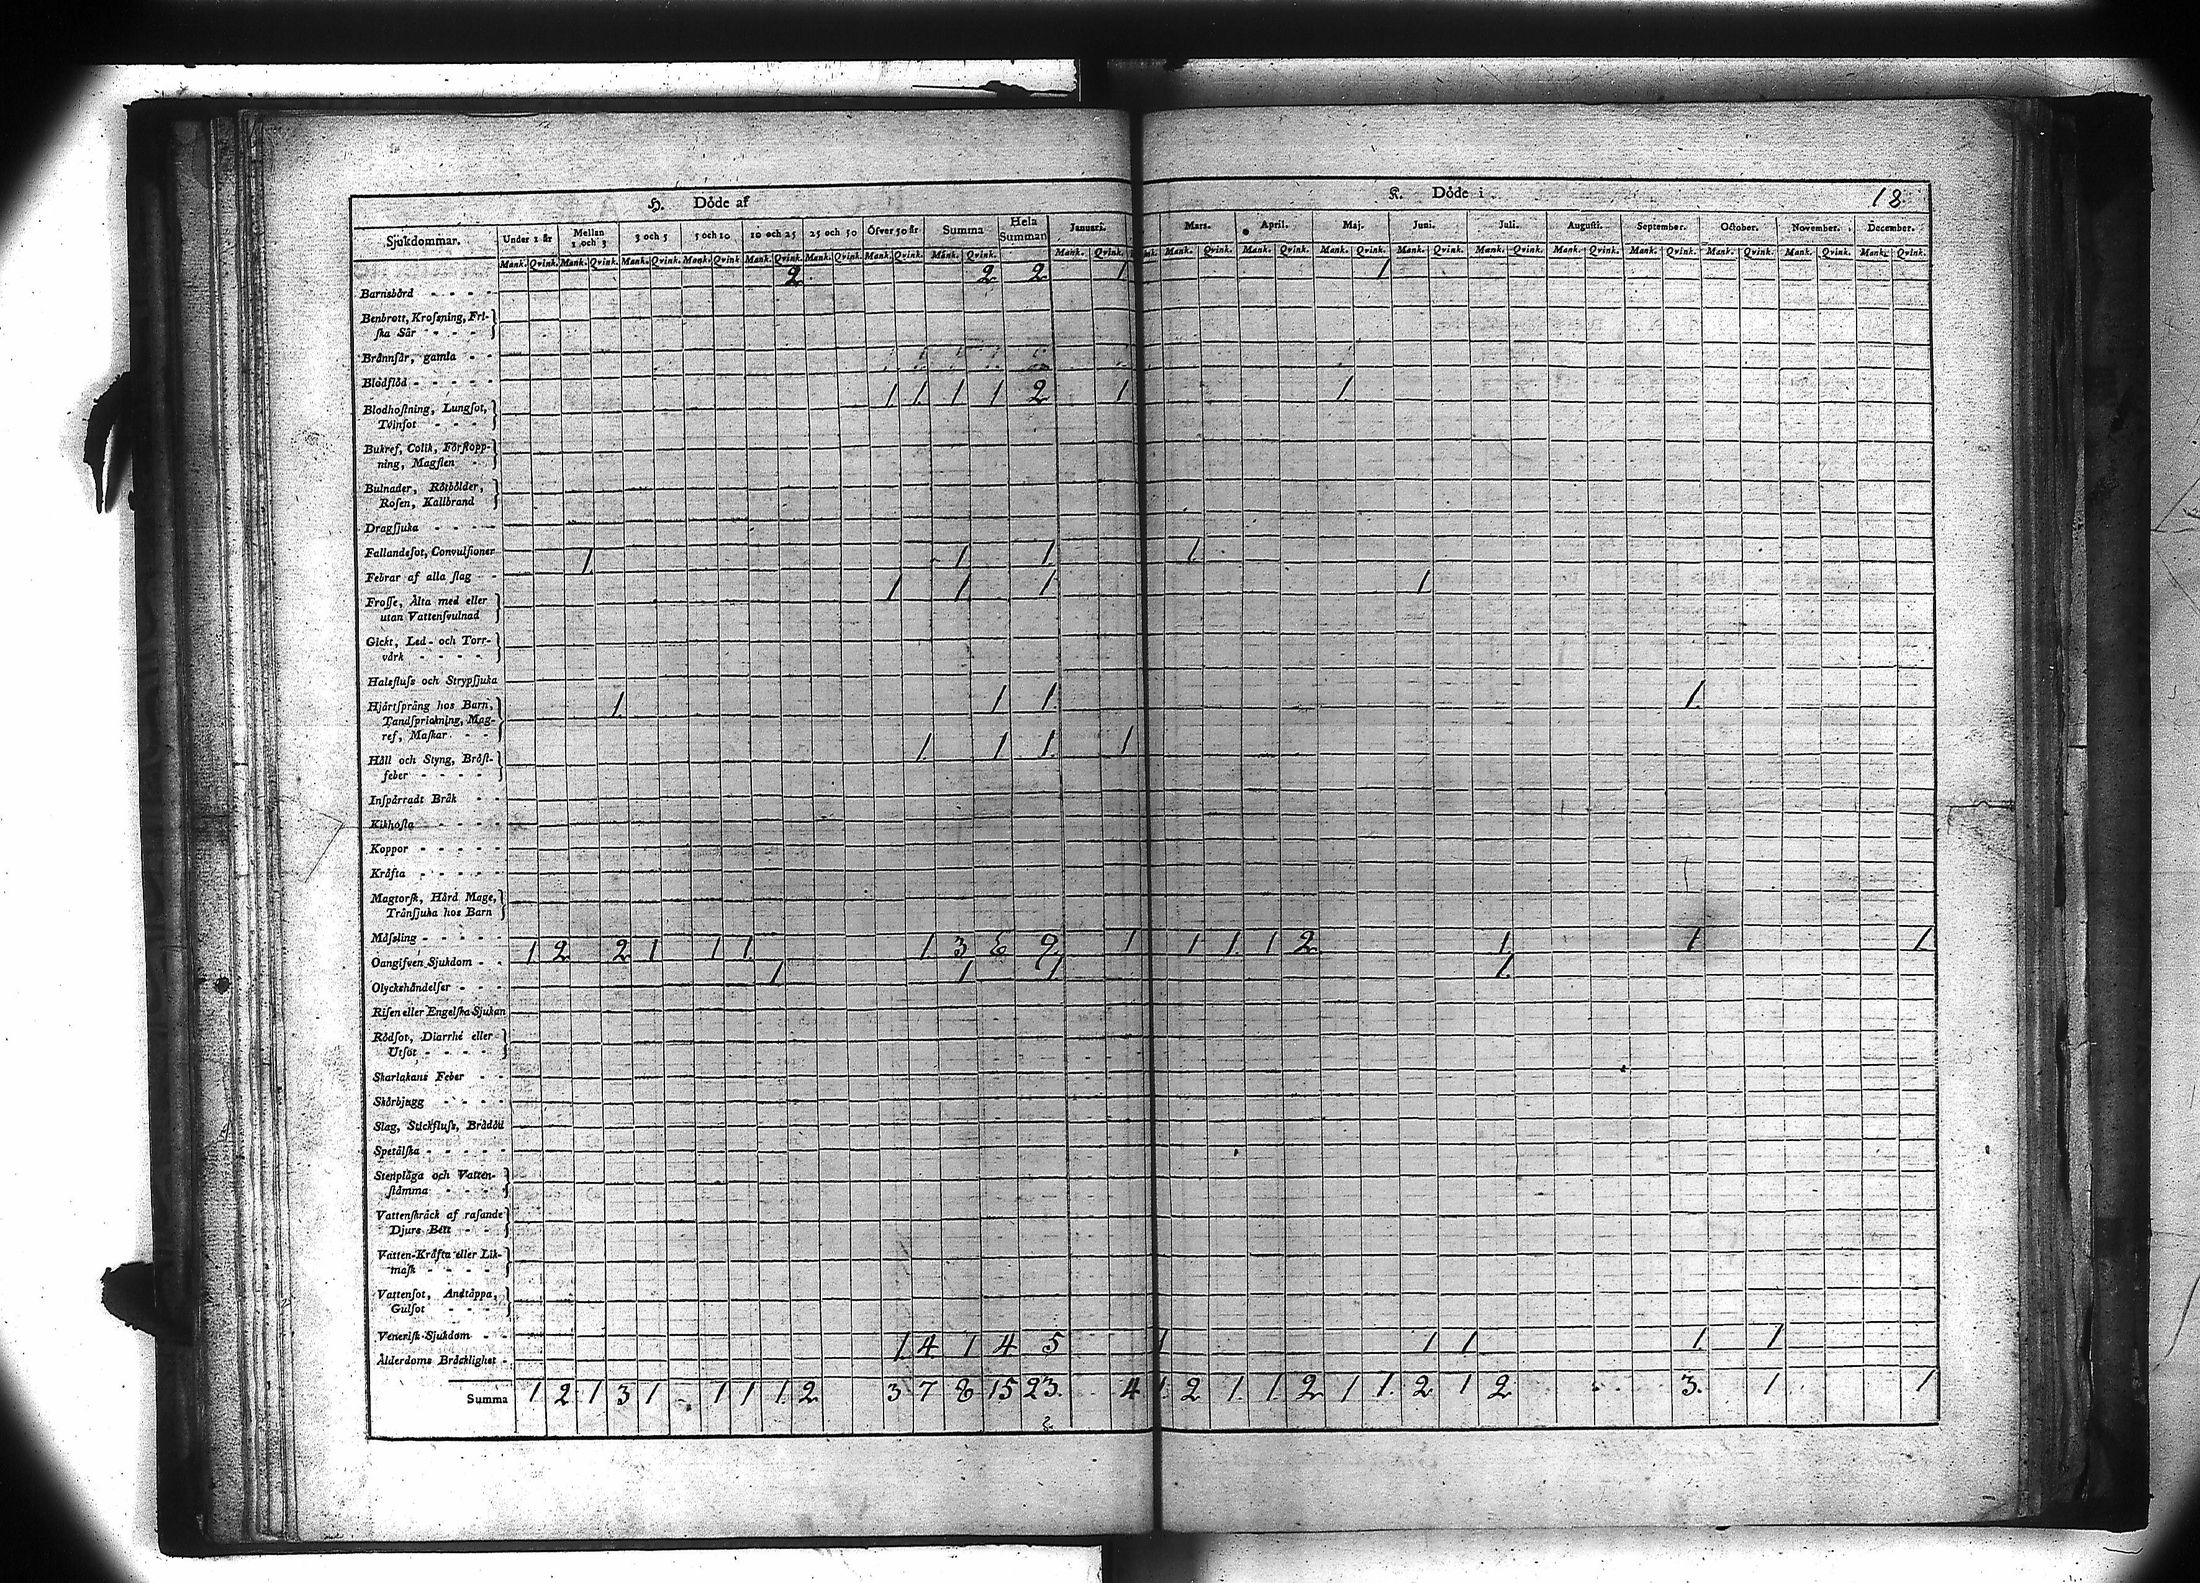 H. Döde af K. Döde i 18
Sjukdommar. Under 1 år Mellan 1 och 3 3 och 5 5 och 10 10 och 25 25 och 50 Öfver 50 år Summa Hela Summan Januari. Mars. April. Maj. Juni. Juli. Augusti. September. October. November. December.
Mank. Qvink. Mank. Qvink. Mank. Qvink. Mank. Qvink. Mank. Qvink. Mank. Qvink. Mank. Qvink. Mank. Qvink. Mank. Qvink. Mank. Qvink. Mank. Qvink. Mank. Qvink. Mank. Qvink. Mank. Qvink. Mank. Qvink. Mank. Qvink. Mank. Qvink. Mank. Qvink. Mank. Qvink.
2 2 2 1 1
Barnsbörd - - - -
Benbrott, Krosning, Fri-
ska Sår - - - -
Brännsår, gamla - -
Blodflöd - - - - -
1 1 1 1 2 1 1
Blodhostning, Lungsot,
Tvinsot - - -
Bukref, Colik, Förstopp-
ning, Magsten -
Bulnader, Rötbölder,
Rosen, Kallbrand
Dragsjuka - - - -
Fallandesot, Convulsioner
1 1 1 1
Febrar af alla slag - -
1 1 1 1
Frosse, Älta med eller
utan Vattensvulnad
Gickt, Led- och Torr-
värk - - - -
Halsfluss och Strypsjuka
1 1 1 1
Hjärtsprång hos Barn,
Tandsprickning, Mag-
ref, Maskar - -
1 1 1 1
Håll och Styng, Bröst-
feber - - - -
Inspärradt Bråk - -
Kikhosta - - - -
Koppor - - - - -
Kräfta - - - - -
Magtorsk, Hård Mage,
Tränsjuka hos Barn
Mässling - - - - -
1 2 2 1 1 1 1 3 6 9 1 1 1 1 2 1 1 1
Oangifven Sjukdom - -
1 1 1 1
Olyckshändelser - - -
Risen eller Engelska Sjukan
Rödsot, Diarrhé eller
Utsot - - - -
Skarlakans Feber - -
Skörbjugg - - - -
Slag, Stickfluss, Bråddöd
Spetälska - - - - -
Stenplåga och Vatten-
stämma - - - -
Vattenskräck af rasande
Djurs Bett - -
Vatten-Kräfta eller Lik-
mask - - - -
Vattensot, Andtäppa,
Gulsot - - -
Venerisk Sjukdom - -
1 4 1 4 5 1 1 1 1 1
Ålderdoms Bräcklighet -
Summa 1 2 1 3 1 - 1 1 1 2 3 7 8 15 23 4 1 2 1 1 2 1 1 2 1 2 3 1 1